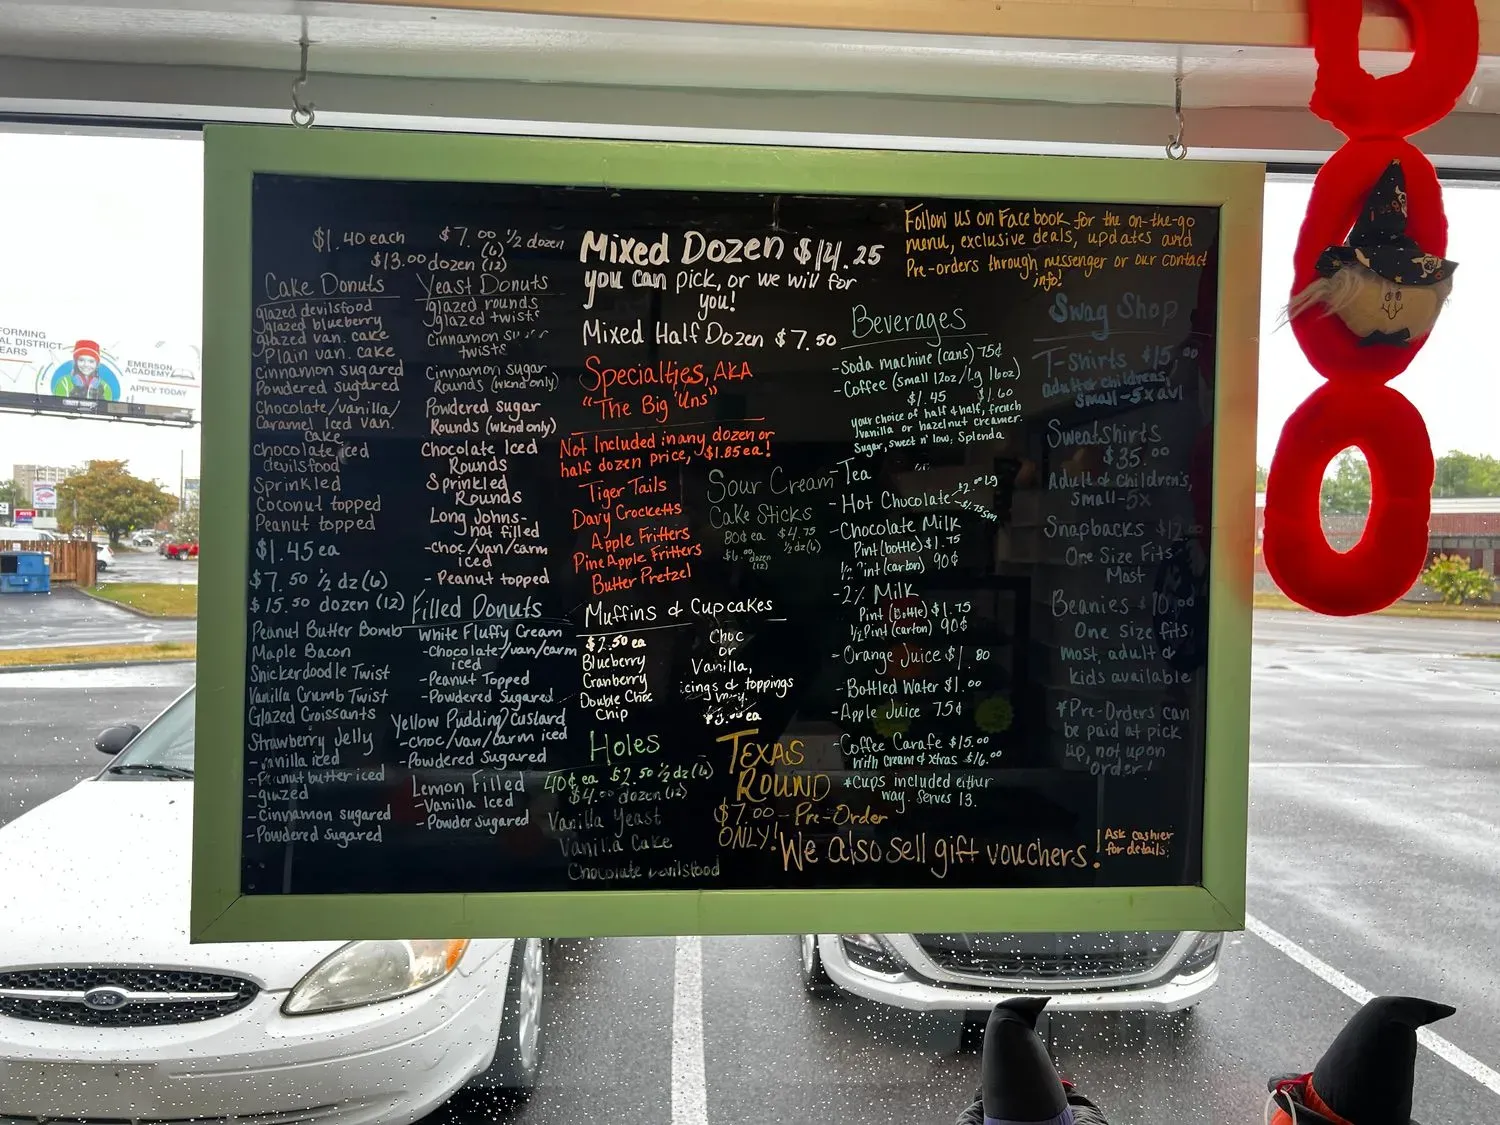 $1.40 each
$7.00 1/2 dozen (6)
$13.00 dozen (12)
Cake Donuts
glazed devilsfood
glazed blueberry
glazed van. cake
Plain van. cake
Cinnamon sugared
Powdered sugared
Chocolate/vanilla/
Caramel Iced van.
cake
chocolate iced
devilsfood
Sprinkled
Coconut topped
Peanut topped
$1.45 ea
$7.50 1/2 dz (6)
$15.50 dozen (12)
Peanut Butter Bomb
Maple Bacon
Snickerdoodle Twist
Vanilla Crumb Twist
Glazed Croissants
Strawberry Jelly
-vanilla iced
-Peanut butter iced
-glazed
-Cinnamon sugared
-Powdered sugared
Yeast Donuts
glazed rounds
glazed twists
Cinnamon
twists
Cinnamon Sugar
Rounds (wknd only)
Powdered sugar
Rounds (wknd only)
Chocolate Iced
Rounds
Sprinkled
Rounds
Long Johns-
not filled
-choc/van/carm
iced
- Peanut topped
Filled Donuts
White Fluffy Cream
-Chocolate/van/carm
iced
-Peanut Topped
-Powdered Sugared
Yellow Pudding/Custard
-choc/van/carm iced
-Powdered Sugared
Lemon Filled
-Vanilla Iced
-Powder Sugared
Mixed Dozen $14.25
you can pick, or we will for
you!
Mixed Half Dozen $7.50
Specialties, AKA
"The Big 'Uns"
Not Included in any dozen or
half dozen price, $1.85 ea!
Tiger Tails
Davy Crocketts
Apple Fritters
PineApple Fritters
Butter Pretzel
Sour Cream
Cake Sticks
80¢ ea $4.75
1/2 dz (6)
$6.00 dozen
(12)
Muffins & Cupcakes
$2.50 ea
Blueberry
Cranberry
Double Choc
Chip
Choc
or
Vanilla,
icings & toppings
vary.
ea
Holes
40¢ ea $2.50 1/2 dz (6)
$4.00 dozen (12)
Vanilla Yeast
Vanilla Cake
Chocolate devilsfood
Texas
Round
$7.00 - Pre-Order
ONLY!
Follow us on Facebook for the on-the-go
menu, exclusive deals, updates and
Pre-orders through messenger or our contact
info!
Beverages
-Soda machine (cans) 75¢
-Coffee (small 12oz/Lg 16oz)
$1.45 $1.60
your choice of half & half, french
vanilla or hazelnut creamer.
Sugar, sweet n' low, Splenda
-Tea
or
- Hot Chocolate $2.00 Lg
$1.75 sm
-Chocolate Milk
Pint (bottle) $1.75
1/2 Pint (carton) 90¢
-2% Milk
Pint (Bottle) $1.75
1/2 Pint (carton) 90¢
- Orange Juice $1.80
-Bottled Water $1.00
-Apple Juice 75¢
-Coffee Carafe $15.00
with cream & xtras $16.00
*Cups included either
way. Serves 13.
Swag Shop
T-shirts $15.00
adult or childrens,
small-5x avl
Sweatshirts
$35.00
Adult & Children's,
small-5x
Snapbacks $12.00
One Size Fits
Most
Beanies $10.00
One size fits
most, adult &
kids available
*Pre-Orders can
be paid at pick
up, not upon
order!
We also sell gift vouchers!
Ask cashier
for details.
EMERSON
ACADEMY
APPLY TODAY